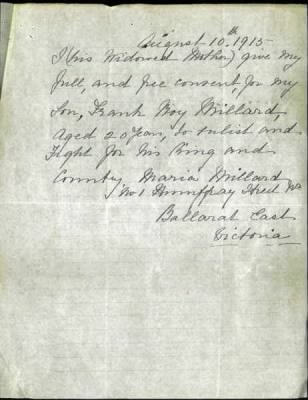 August 10th 1915
I (his Widowed Mother) give my
full and free consent, for my
Son, Frank Roy Millard,
Aged 20 years, to enlist and
Fight for his King and
Country Maria Millard
No 1 Humffray Street Nth
Ballarat East
Victoria